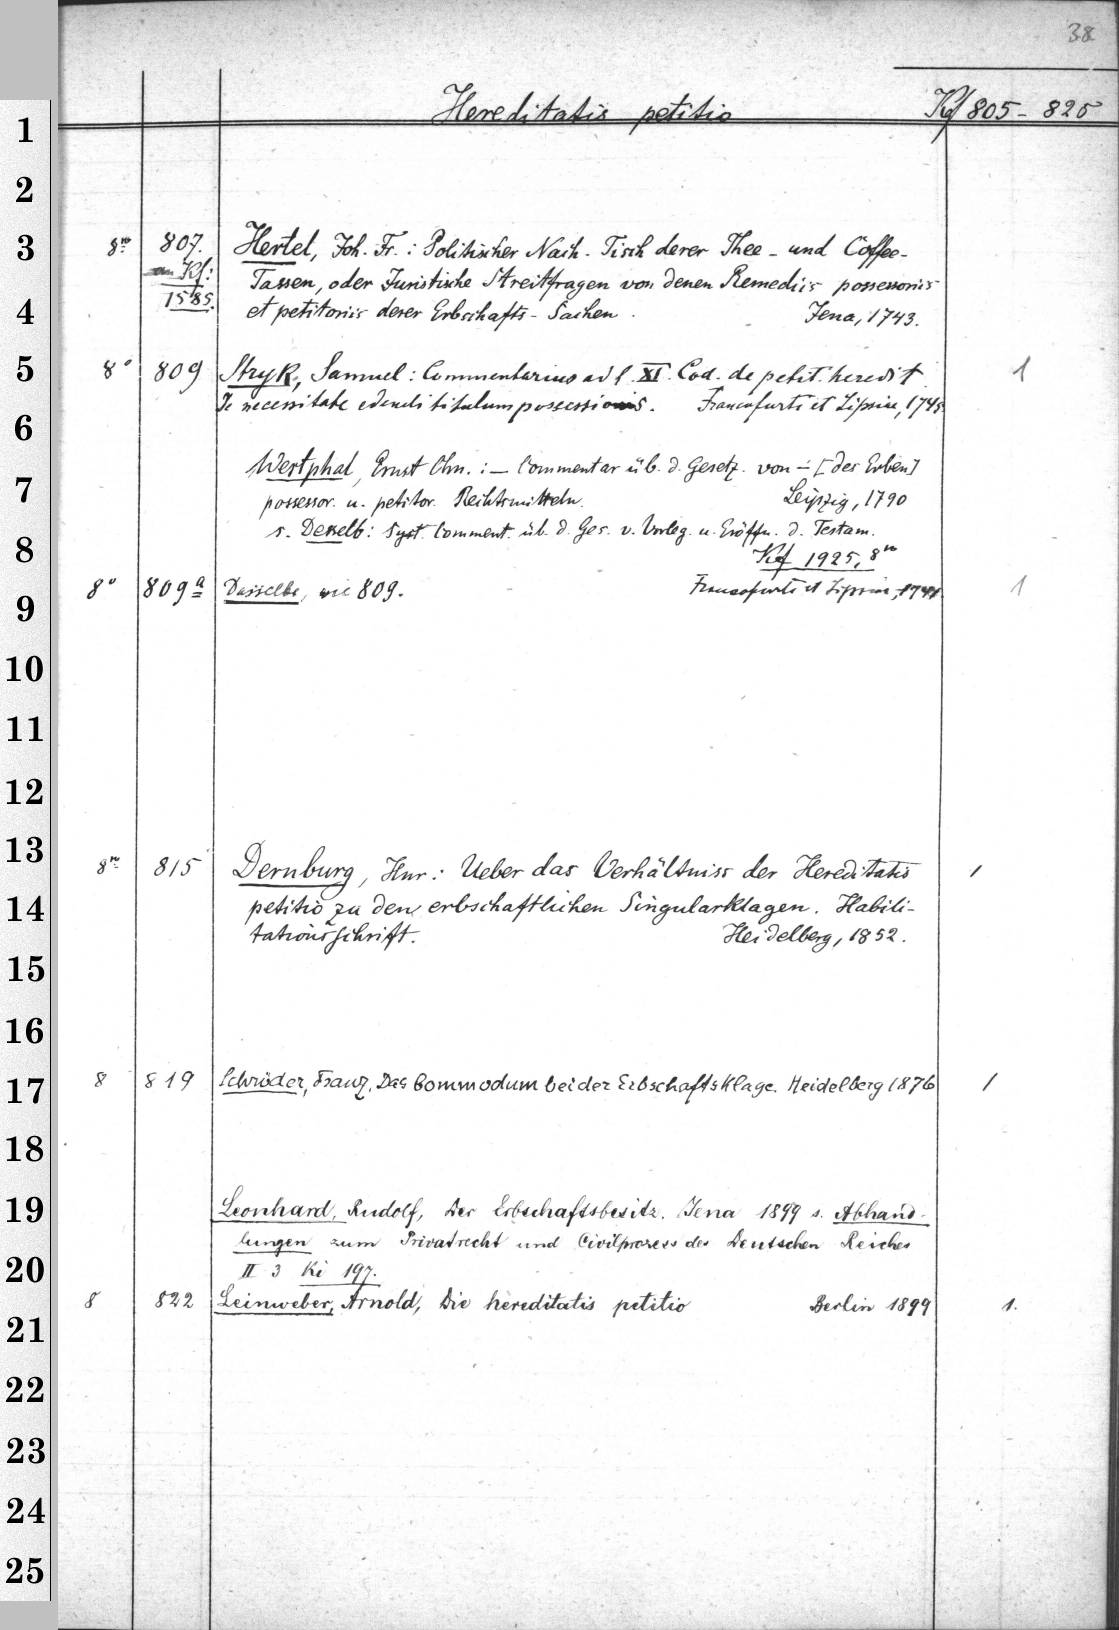 38
Hereditatis petitio Kf 805 - 825
1
2
3 8vo 807. Hertel, Joh. Fr.: Politischer Nach-Tisch derer Thee- und Coffee-
an Kf: Tassen, oder Juristische Streitfragen von denen Remediis possessoriis
4 1585. et petitoriis derer Erbschafts-Sachen. Jena, 1743.
5 8° 809 Stryk, Samuel: Commentarius ad l. XI. Cod. de petit. heredit.
De necessitate edendi titulum possessionis. Francofurti et Lipsiae, 1745.
6
Westphal, Ernst Chn.: - Commentar üb. d. Gesetz. von - [des Erben]
7 possessor. u. petitor. Rechtsmitteln. Leipzig, 1790
s. Desselb: Syst. Comment. üb. d. Ges. v. Vorleg. u. Eröffn. d. Testam.
8 Kf 1925, 8vo
8° 809a Dasselbe, wie 809. Francofurti et Lipsiae, 1741. 1
9
10
11
12
13 8vo 815 Dernburg, Hnr: Ueber das Verhältniss der Hereditatis 1
14 petitio zu den erbschaftlichen Singularklagen. Habili-
tationsschrift. Heidelberg, 1852.
15
16
17 8 819 Schröder, Franz, Das Commodum bei der Erbschaftsklage. Heidelberg 1876 1
18
19 Leonhard, Rudolf, Der Erbschaftsbesitz. Jena 1899 s. Abhand-
lungen zum Privatrecht und Civilprozess des Deutschen Reiches
20 II 3 Ki 197.
8 822 Leinweber, Arnold, Die hereditatis petitio Berlin 1899 1.
21
22
23
24
25